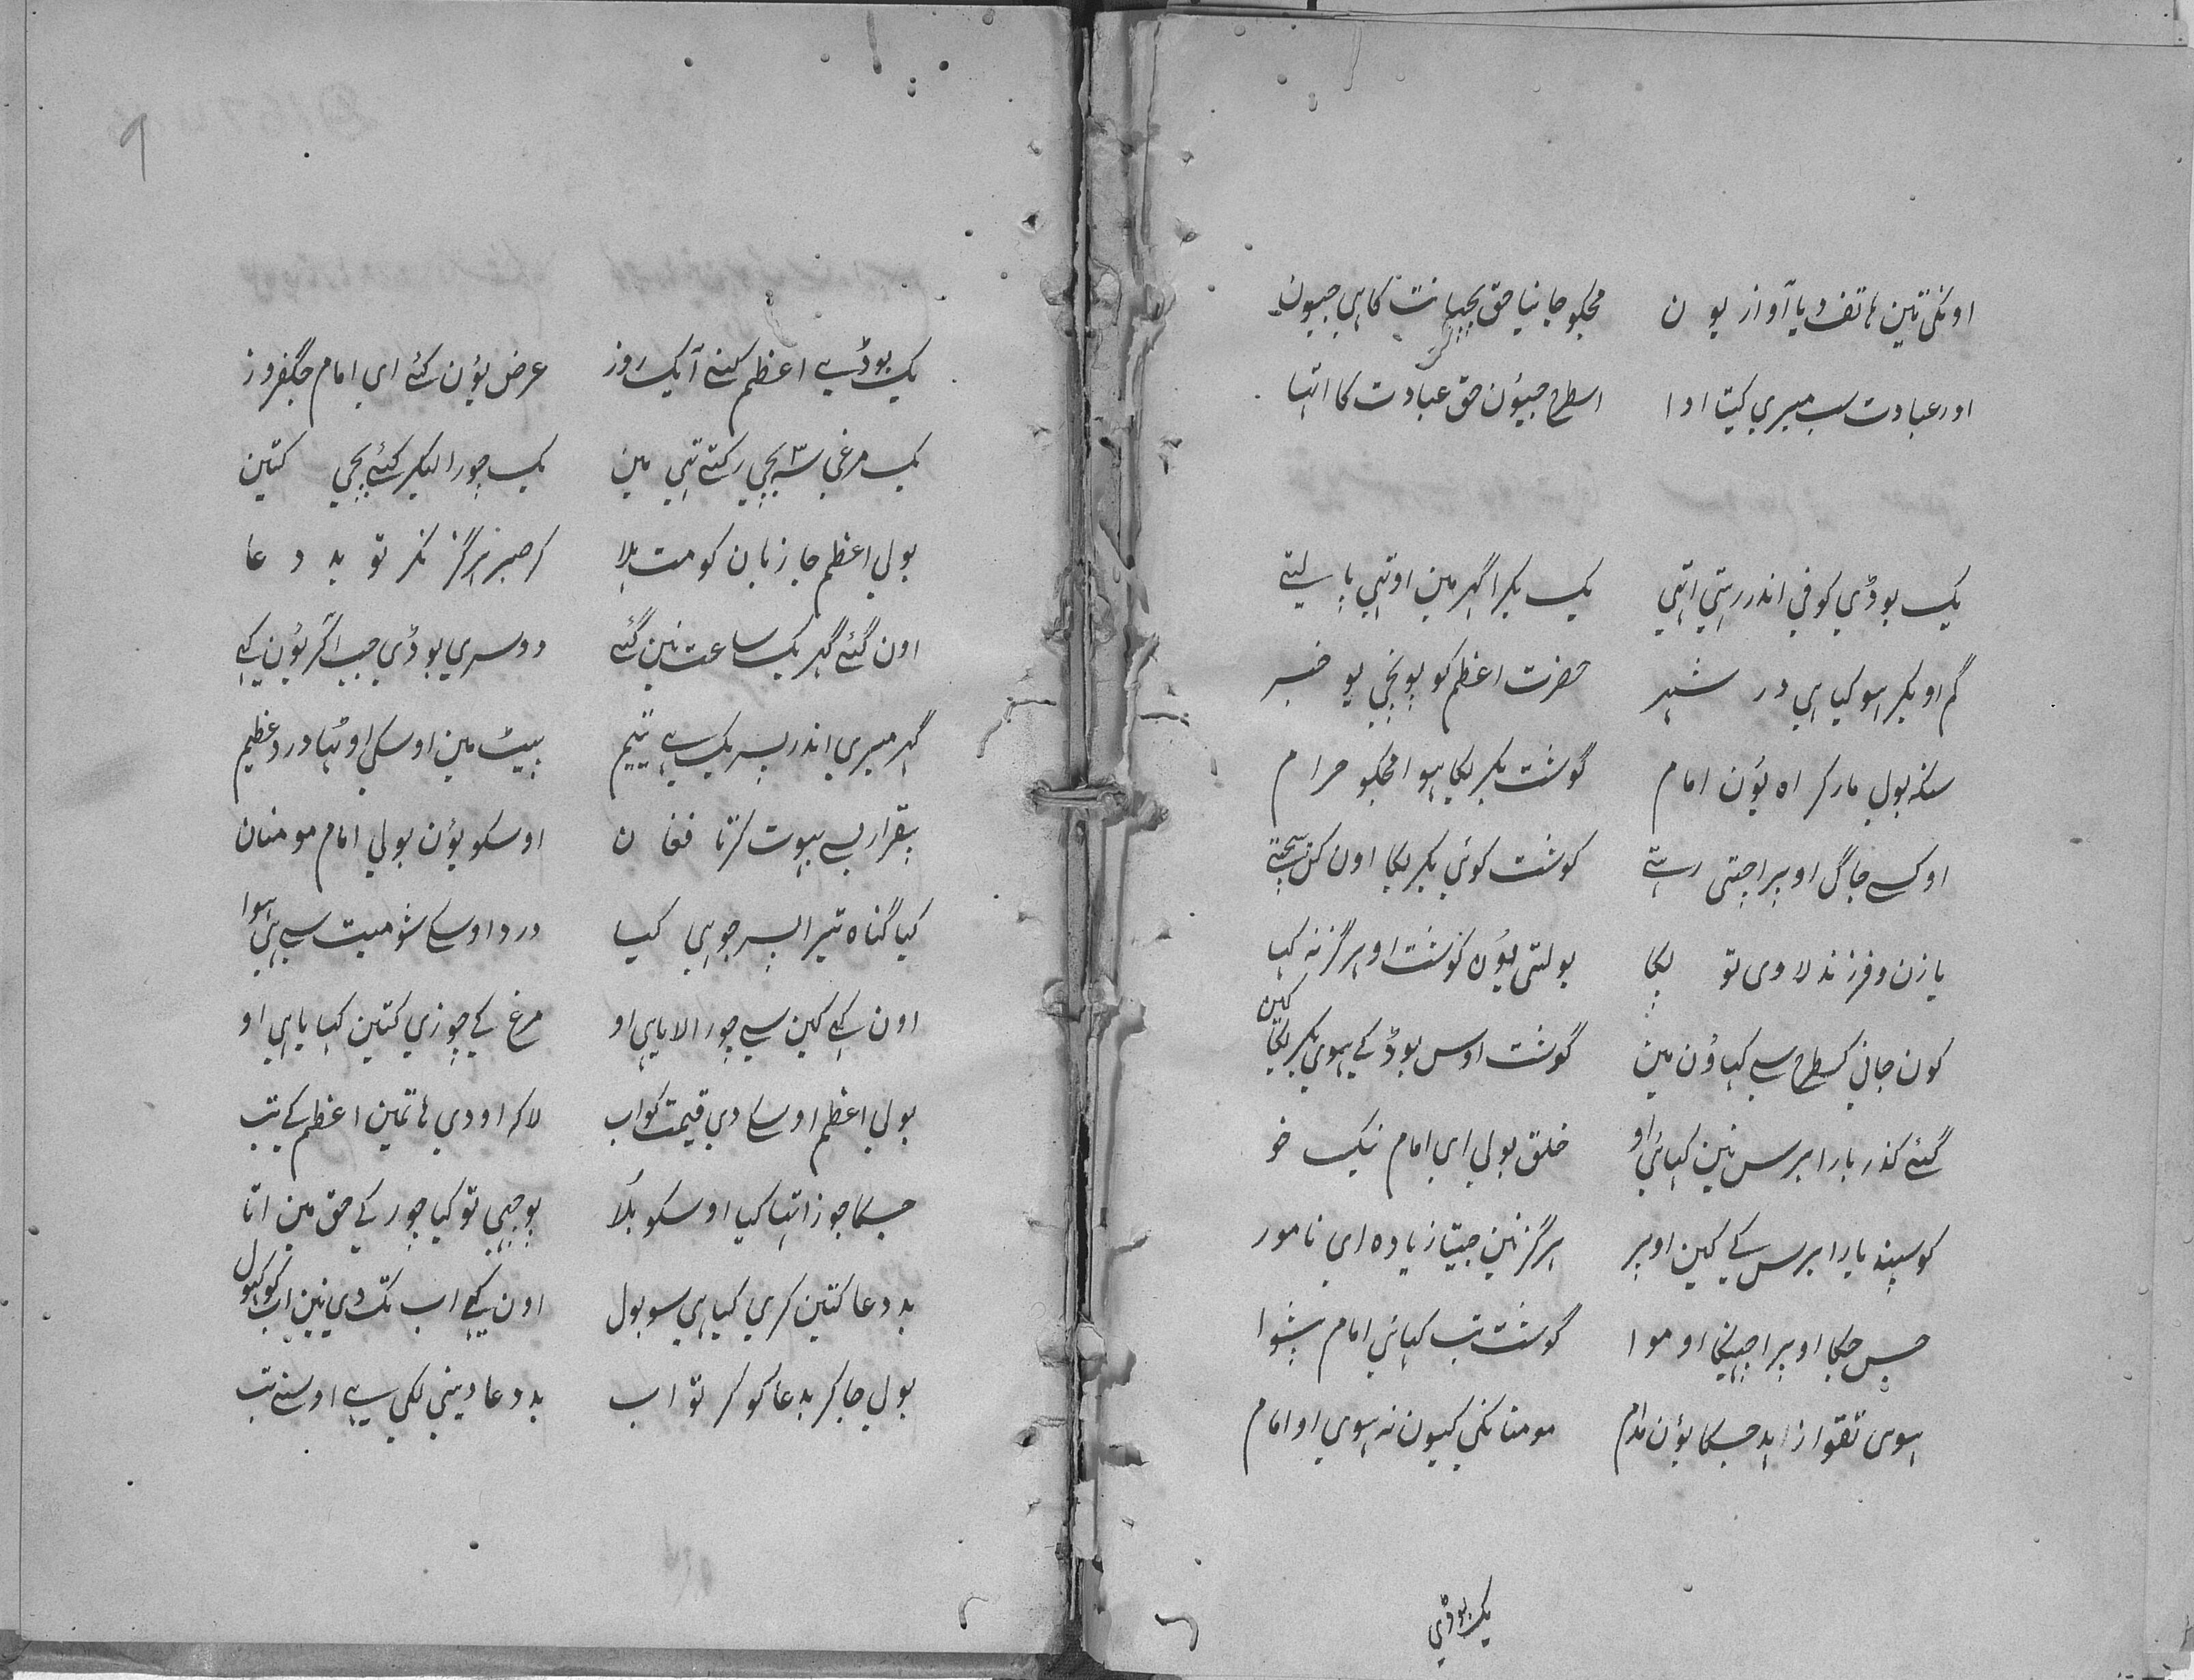 اونکی تین ہاتف دیا آواز یو ن مجکو جانیا حق بجہانت کا ہی جیون
اور عبادت سب میری کیتا ادا اسطرح جیؤن حق عبادت کا اتہا
یک بوڈی کوفی اندر رہتی اتہی یک بکرا گہر مین او تہی پالتے
گم او بکرا ہو گیا ہی در شہر حضرت اعظم کو پونچی یو خبر
سنکہ بولی مار کر اہ یؤن امام گوشت بکریکا ہوا مجکو حرام
گوشت کوئی بکریکا اون کن بیچتے
یا زن و فرزند لاوی تو پکا بولتی یؤن گوشت او ہرگز نہ کہا
کون جانی کسطرح سے کہاؤن مین گوشت اوس بوڈی کے ہوی بکریکا کہین
گئے گذر بارا برس نین کہائی او خلق بولی ای امام نیک خو
گوسپند بارا برس کے کین اوپر ہرگز نین جیتا زیادہ ای نامور
گوشت تب کہائی امام پیشوا
ہوی تقوا زاہد جسکا یؤن مدام مومنانکی کیون نہ ہوی او امام
یک بوڈی
٩
یک بوڈی اعظم کنے آ یک روز عرض یؤن کئے ای امام جگفروز
یک مرغی سہ بچی رکتے تہی مین یک چورا لیکر گئے بچی کتین
بولی اعظم جا زبان کو مت ہلا کر صبر ہرگز نکر تو بد د عا
اون گئے گہر یک ساعت نین گئے دوسری بوڈی جب آکر یؤن کہی
گہر میری اندر پسر یک ہے یتیم پیٹ مین اوسکی اوٹہا درد عظیم
بیقرار ہے بہوت کرتا فغا ن اوسکو یؤن بولی امام مومنان
کیا گناہ تیرا پسر جو ہی کیا درد اوسکے شومیت سے ہی ہوا
اون کہی کین سے چورا لایا ہی او مرغ کے چوزی کتین کہایا ہی او
بولی اعظم اوسکے دی قیمت کو اب لاکر او دی ہاتمین اعظم کے تب
جسکا چوزا تہا کیا اوسکو بلا پوچہی تو کیا چور کے حق مین اتا
بد دعا کتین کری کیا ہی سو بول اون کہی اب تک دی نین اب کو کہول
بولی جا کر بد عا کو کر تو اب بد دعا دینی لکی ہے اوسنے تب